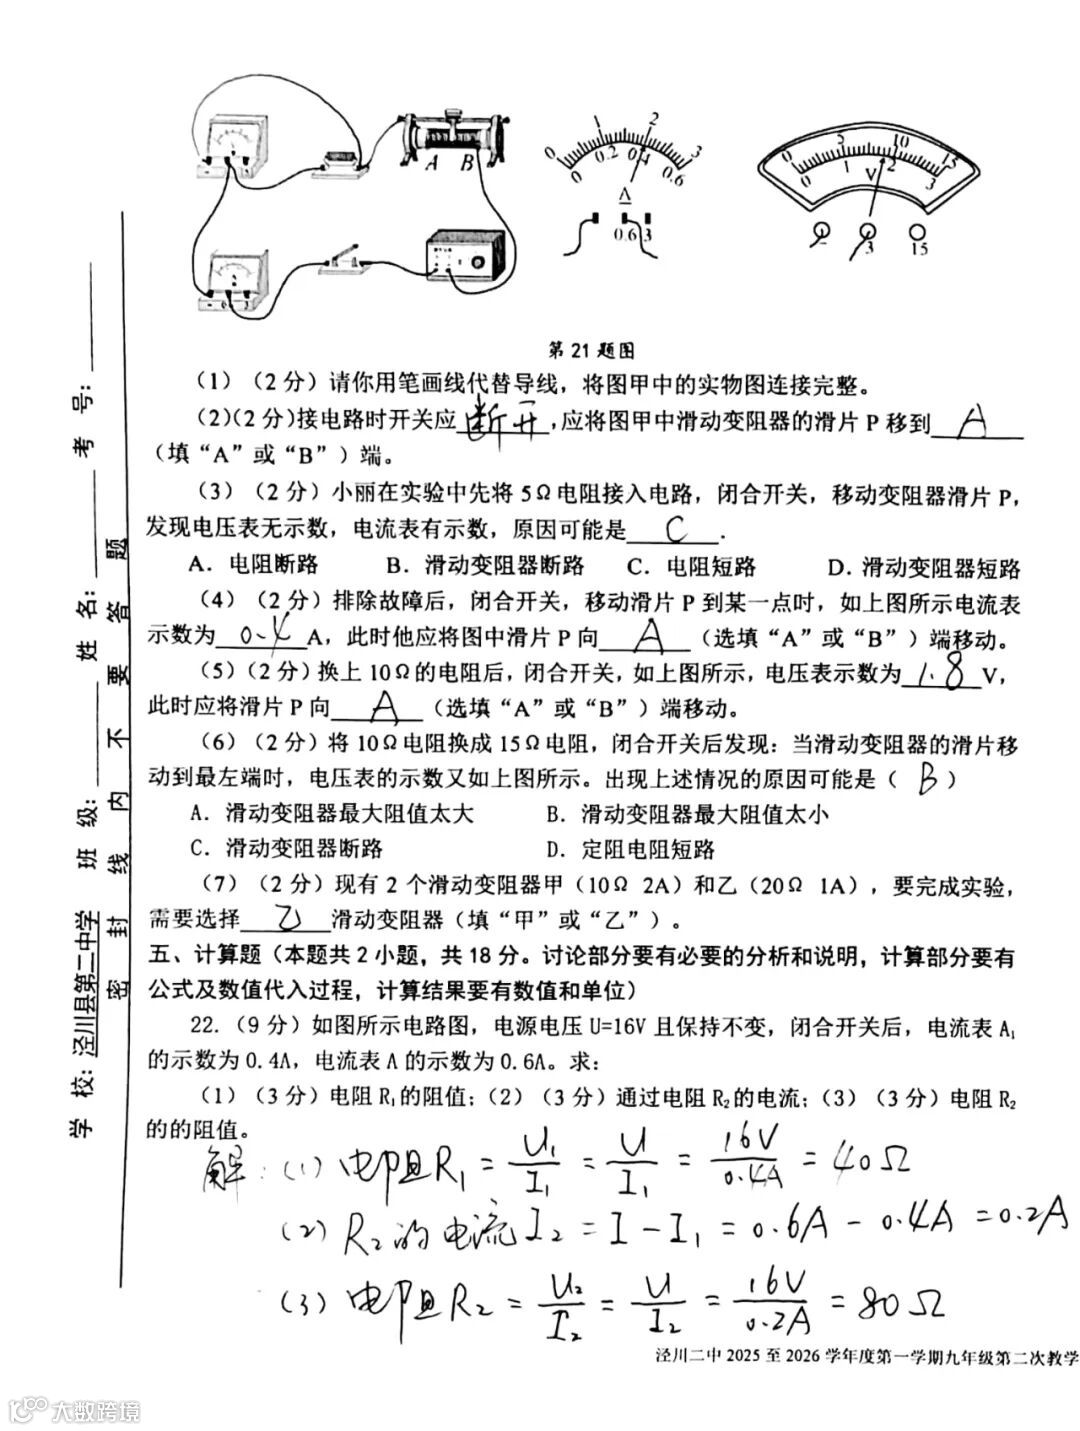 A B
0 1 2 3
0 0.2 0.4 0.6
A
0.6 3
0 5 10 15
0 1 2 3
V
- 3 15
第21题图
(1)(2分)请你用笔画线代替导线，将图甲中的实物图连接完整。
(2)(2分)接电路时开关应断开,应将图甲中滑动变阻器的滑片P移到 A
(填“A”或“B”)端。
(3)(2分)小丽在实验中先将5Ω电阻接入电路，闭合开关，移动变阻器滑片P，
发现电压表无示数，电流表有示数，原因可能是 C .
A. 电阻断路 B. 滑动变阻器断路 C. 电阻短路 D. 滑动变阻器短路
(4)(2分)排除故障后，闭合开关，移动滑片P到某一点时，如上图所示电流表
示数为 0.4 A，此时他应将图中滑片P向 A (选填“A”或“B”)端移动。
(5)(2分)换上10Ω的电阻后，闭合开关，如上图所示，电压表示数为 1.8 V，
此时应将滑片P向 A (选填“A”或“B”)端移动。
(6)(2分)将10Ω电阻换成15Ω电阻，闭合开关后发现：当滑动变阻器的滑片移
动到最左端时，电压表的示数又如上图所示。出现上述情况的原因可能是( B )
A. 滑动变阻器最大阻值太大 B. 滑动变阻器最大阻值太小
C. 滑动变阻器断路 D. 定阻电阻短路
(7)(2分)现有2个滑动变阻器甲(10Ω 2A)和乙(20Ω 1A)，要完成实验，
需要选择 乙 滑动变阻器(填“甲”或“乙”)。
五、计算题(本题共2小题，共18分。讨论部分要有必要的分析和说明，计算部分要有
公式及数值代入过程，计算结果要有数值和单位)
22.(9分)如图所示电路图，电源电压U=16V且保持不变，闭合开关后，电流表A₁
的示数为0.4A，电流表A的示数为0.6A。求：
(1)(3分)电阻R₁的阻值；(2)(3分)通过电阻R₂的电流；(3)(3分)电阻R₂
的的阻值。
解：(1) 电阻R₁ = U₁/I₁ = U/I₁ = 16V/0.4A = 40Ω
(2) R₂的电流I₂ = I - I₁ = 0.6A - 0.4A = 0.2A
(3) 电阻R₂ = U₂/I₂ = U/I₂ = 16V/0.2A = 80Ω
泾川二中2025至2026学年度第一学期九年级第二次教学
学 校：泾川县第二中学 班 级： 姓 名： 考 号：
密 封 线 内 不 要 答 题
大数跨境